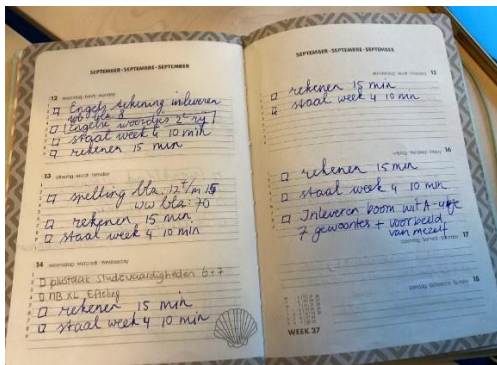 SEPTEMBER-SEPTEMBRE-SEPTEMBER
12 maandag lundi Monday
Engels tekening inleveren
wb blz 8
[Engelse woordjes 2e rij]
staal week 4 10 min
rekenen 15 min
13 dinsdag mardi Tuesday
spelling blz. 12 t/m 15
WW blz: 70
rekenen 15 min
staal week 4 10 min
14 woensdag mercredi Wednesday
plustaak Studievaardigheden 6+7
NB XL Efteling
rekenen 15 min
staal week 4 10 min
SEPTEMBER-SEPTEMBRE-SEPTEMBER
donderdag jeudi Thursday 15
rekenen 15 min
staal week 4 10 min
vrijdag vendredi Friday 16
rekenen 15 min
staal week 4 10 min
Inleveren boom wit A-4tje
7 gewoontes + voorbeeld
van mezelf
zaterdag samedi Saturday 17
zondag dimanche Sunday 18
WEEK 37